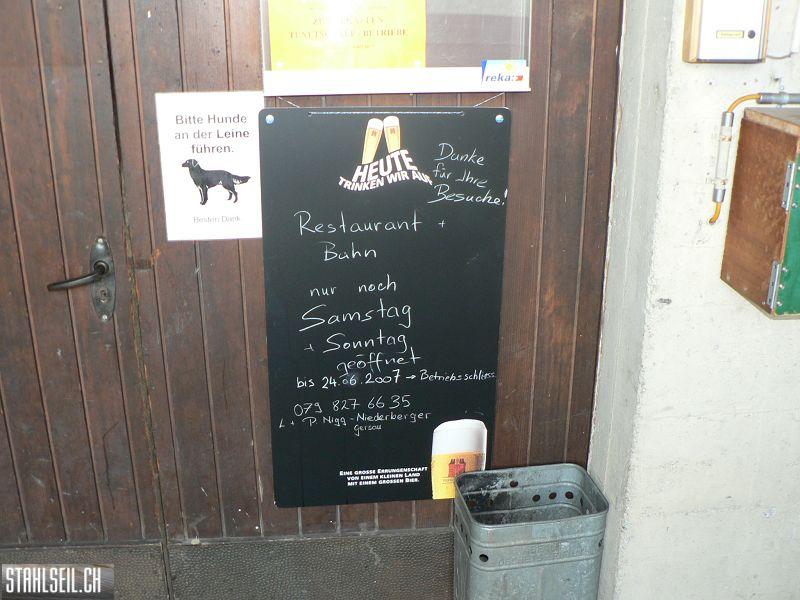 TUNETSCHALP-BETRIEBE
reka:
Bitte Hunde
an der Leine
führen.
Besten Dank
HEUTE
TRINKEN WIR AUF
Danke
für Ihre
Besuche!
Restaurant +
Bahn
nur noch
Samstag
+ Sonntag
geöffnet
bis 24.06.2007 → Betriebsschliess.
079 827 66 35
L + P. Nigg-Niederberger
Gersau
EINE GROSSE ERRUNGENSCHAFT
VON EINEM KLEINEN LAND
MIT EINEM GROSSEN BIER.
STAHLSEIL.CH